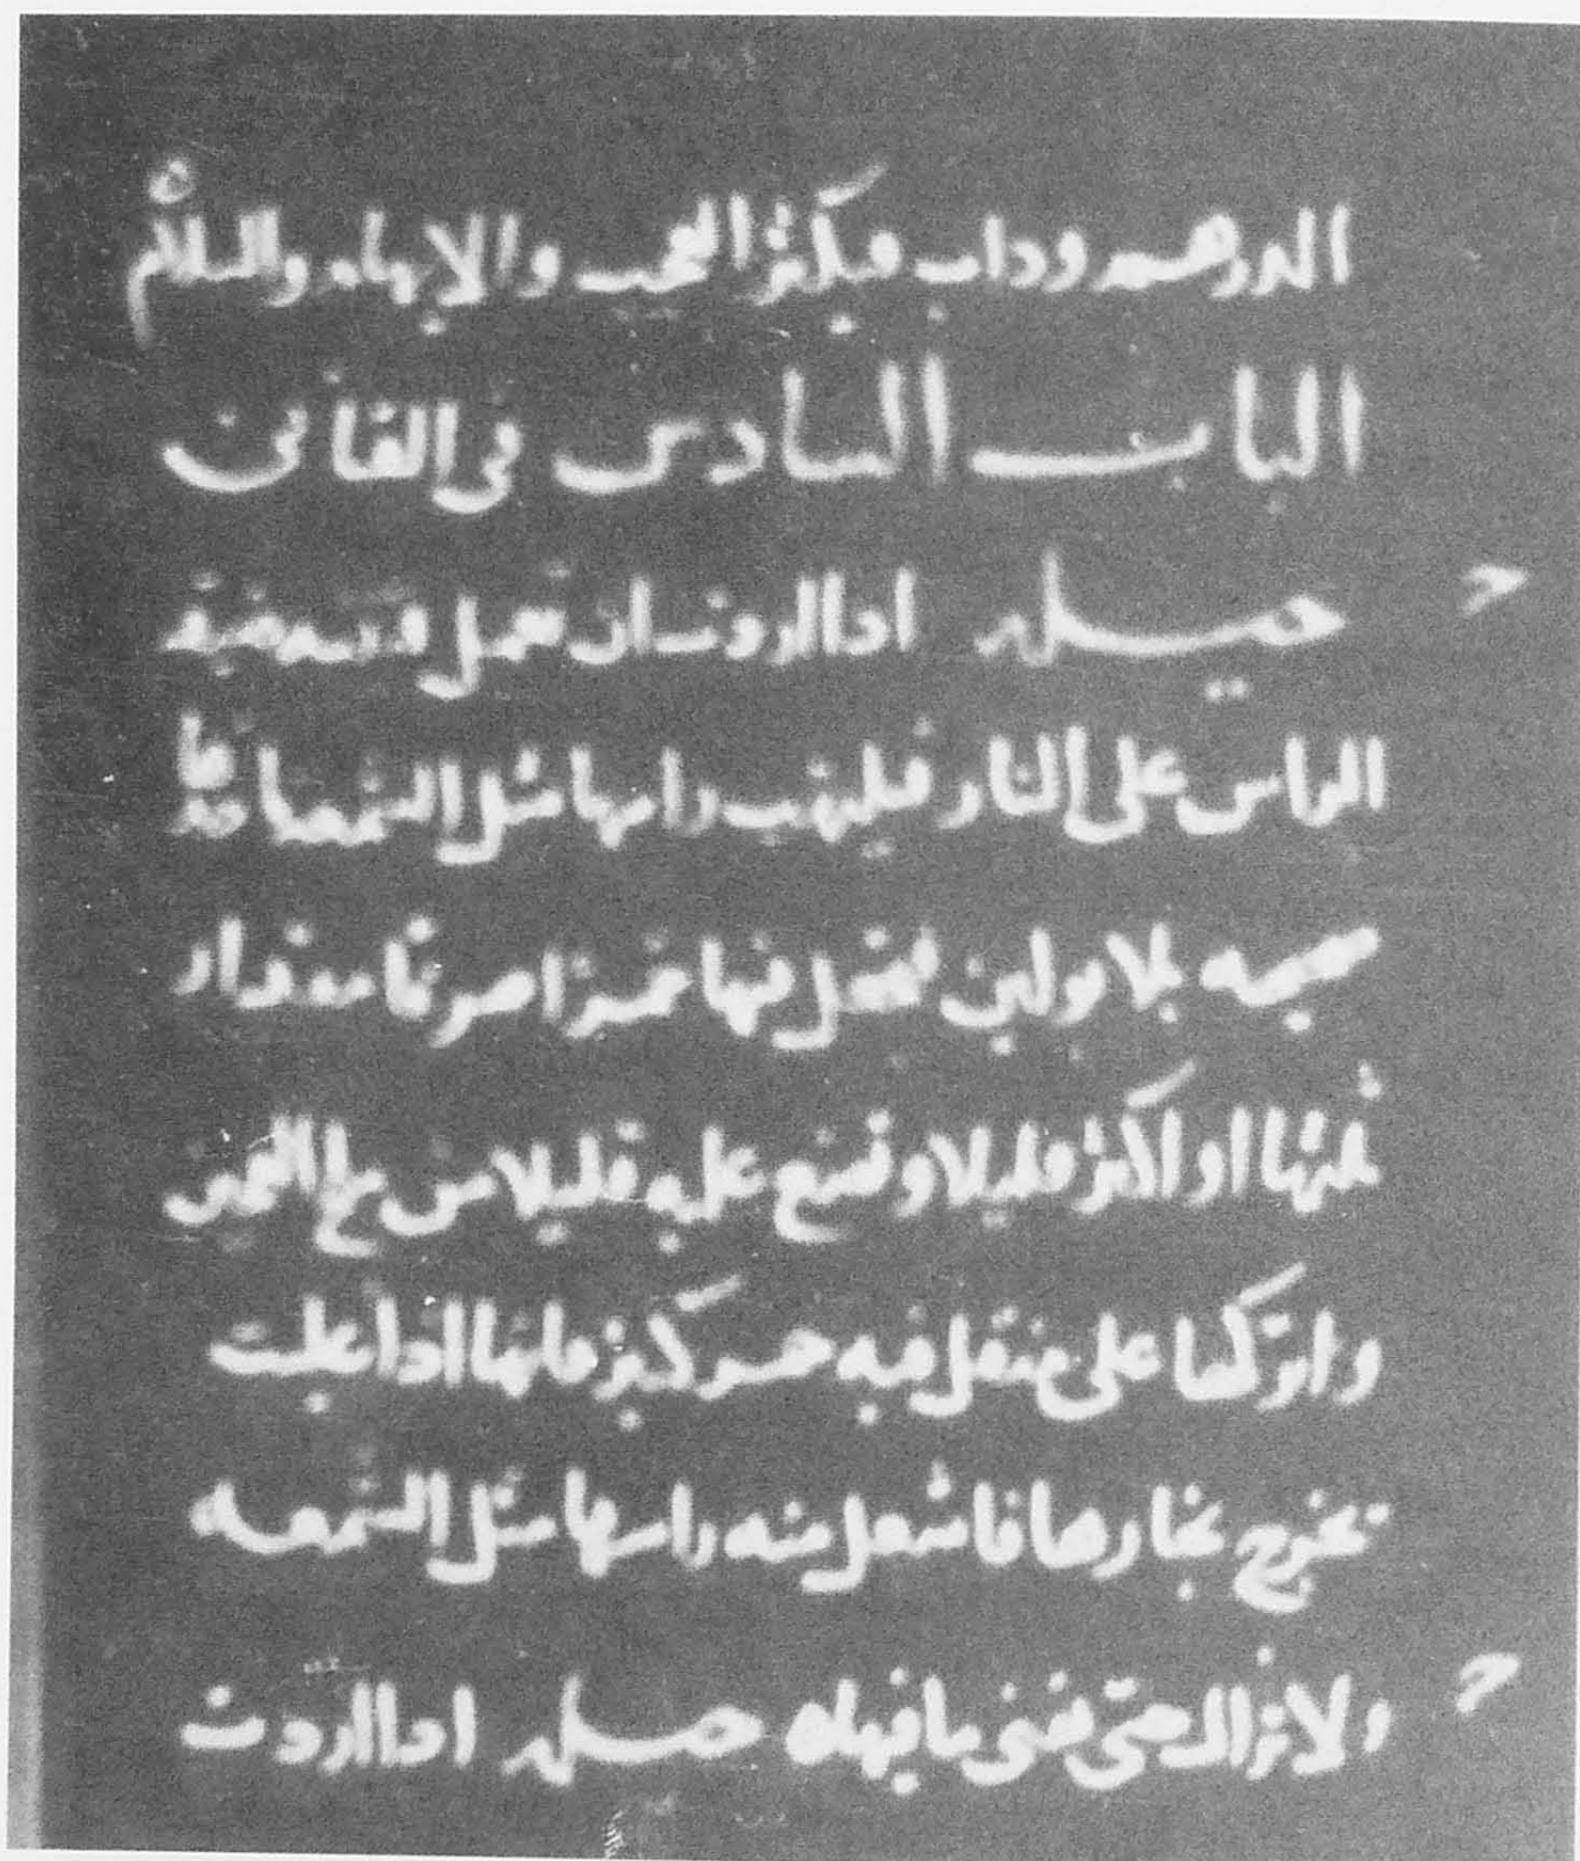 الدرهم وداب فيكثر العجب والابهاه والسلام
الباب السادس في القناني
حيله اذا اردت ان تجعل قنينه ضيقه
الراس على النار فيلتهب راسها مثل الشمعه
صبيبه بلا بولين فتجعل فيها خمرا صرفا مقدار
ثلثها او اكثر قليلا وتضع عليه قليلا من ملح العجين
واتركها على منقل فيه جمر كبير فانها اذا غلت
تخرج بخارها فاشعل منه راسها مثل الشمعه
ولا تزال حتى يفنى ما فيها حيله اذا اردت